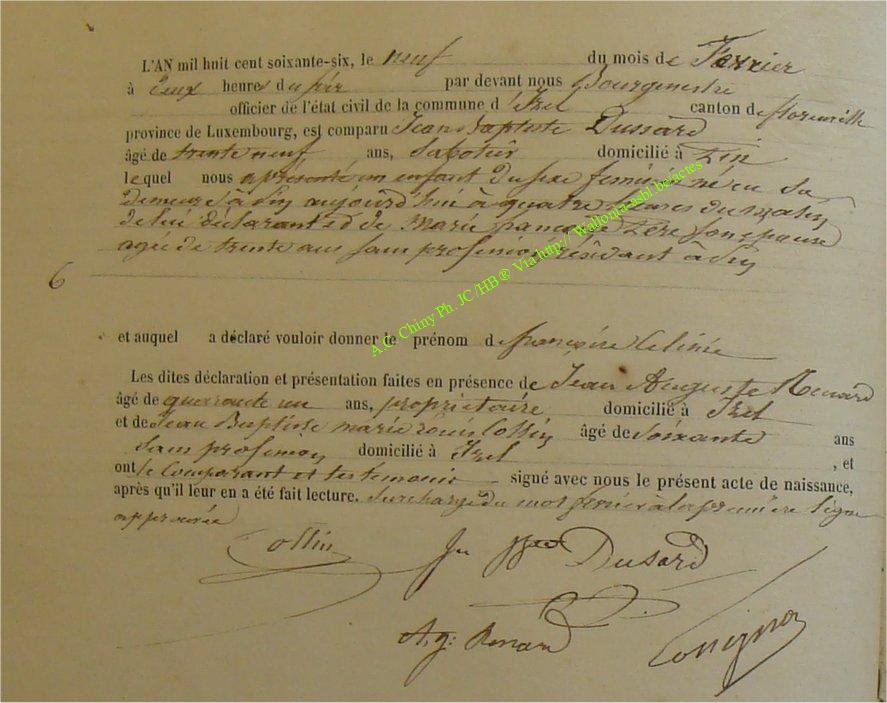 L'AN mil huit cent soixante-six, le neuf du mois de Février
à Deux heures du soir par devant nous Bourgmestre
officier de l'état civil de la commune d'Izel canton de florenville
province de Luxembourg, est comparu Jean Baptiste Dussard
âgé de trente neuf ans, Sabotier domicilié à Pin
lequel nous a présenté un enfant du sexe féminin né en sa
demeure à Pin aujourd'hui à quatre heures du matin
de lui déclarant et de Marie françoise son épouse
agée de trente ans sans profession résidant à Pin
6
et auquel a déclaré vouloir donner le prénom de françoise Celinie
Les dites déclaration et présentation faites en présence de Jean Auguste Renard
âgé de quarante un ans, propriétaire domicilié à Izel
et de Jean Baptiste marie Louis Collin âgé de soixante ans
Sans profession domicilié à Izel , et
ont le Comparant et les temoins signé avec nous le présent acte de naissance,
après qu'il leur en a été fait lecture. Surcharge du mot fevrier à la première ligne
approuvée
Collin Jn Bte Dusard
A.g: Renard
A.C. Chiny Ph. JC/HB® Via http:// Wallonia-asbl be/actes